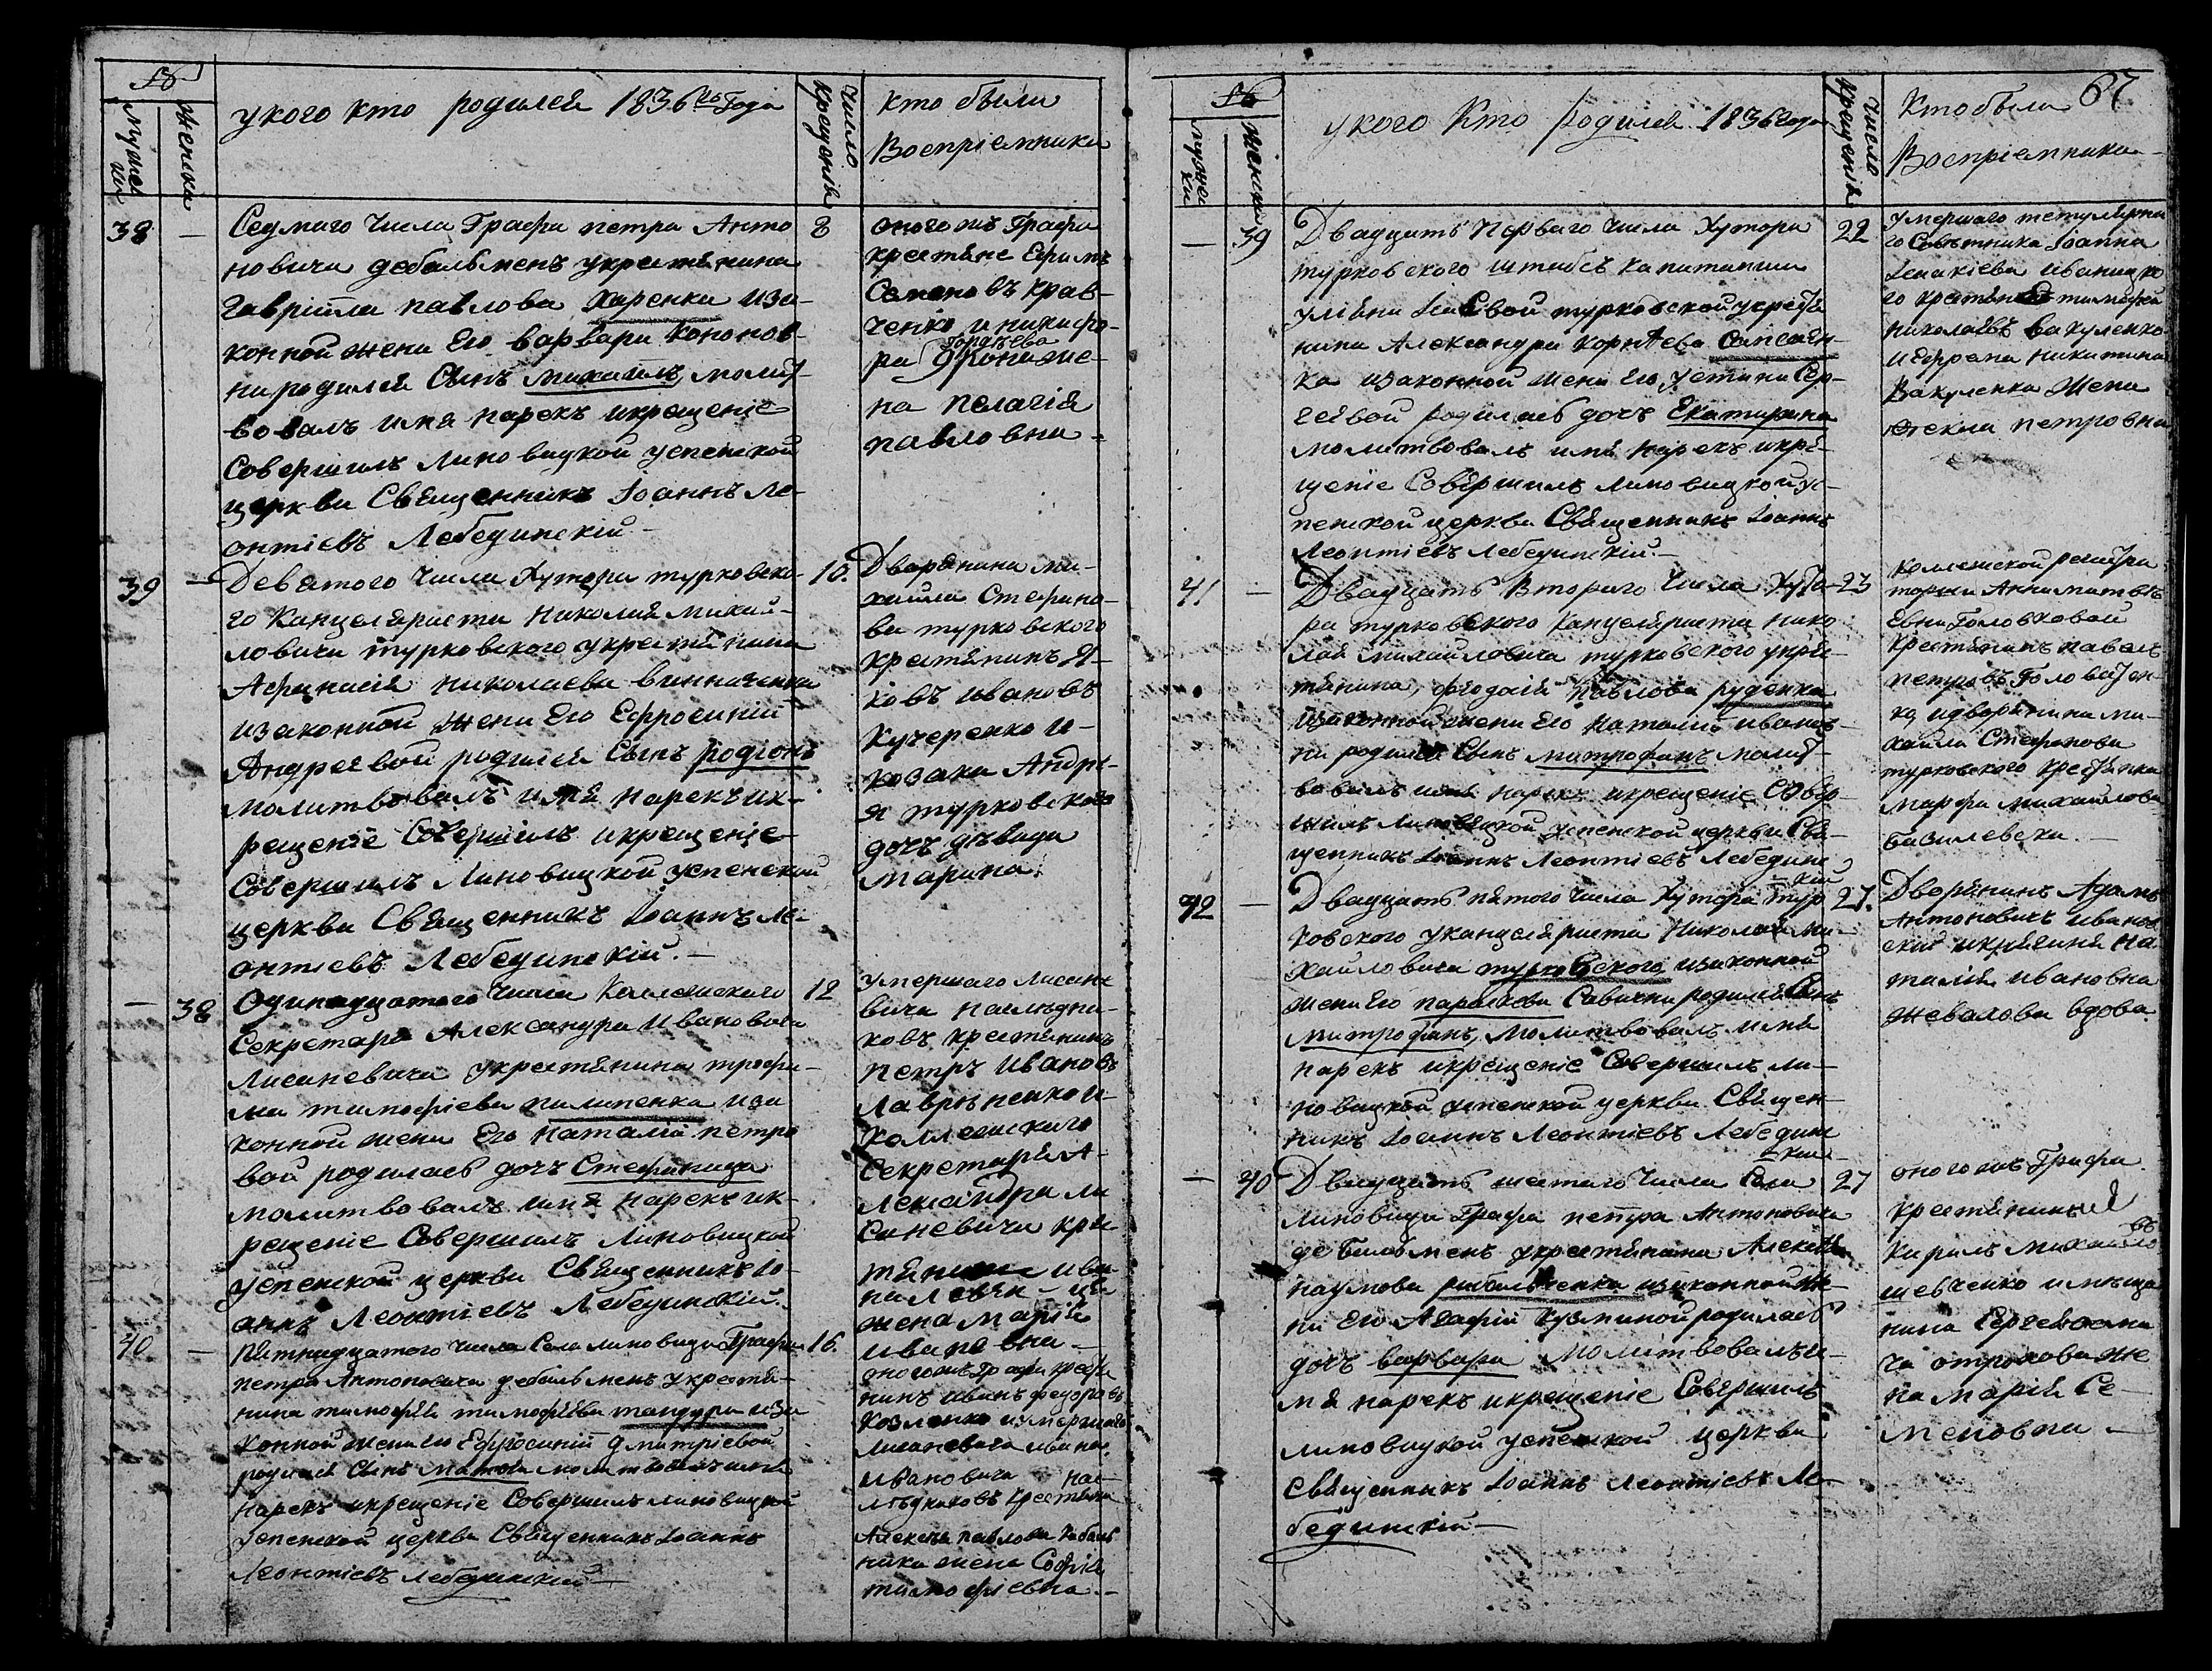 №
Мужеска
Женска
укого кто родился 1836го Года
Число Крещенія
кто были
Воспріемники
38 — Седмаго Числа Графа петра Анто
новича дебальмена укрестянина
Гавріила павлова Харенка иза-
конной жени Его варвари Кононов-
ни родился Сынъ михаилъ, молит-
вовалъ имя нарекъ икрещеніе
Совершилъ Линовицкой успенской
церкви Священникъ Іоаннъ Ле-
онтіевъ Лебединскій —
8
оногожъ Графа
крестяне Ефимъ
Семеновъ крав-
ченко и никифо-
ра
жe-
на пелагія
павловна —
39 — Девятого Числа Хутора турковско-
го Канцеляриста Николая михай-
ловича турковского укрестянина
Афанасія николаева винниченка
изаконной Жени Его Ефросиніи
Андреевой родился Сынъ родіонъ
молитвовалъ имя нарекъ ик-
рещеніе Совершилъ икрещеніе
Совершилъ Линовицкой успенской
церкви Священникъ Іоаннъ Ле-
онтіевъ Лебединскій. —
10.
Дворянина ми-
хаила Стефано-
ва турковского
крестянинъ Я-
ковъ ивановъ
Кучеренко и-
козака Андре-
я турковского
дочъ дѣвица
марина.
— 38 Одинадцатого Числа Коллежского
Секретаря Александра Ивановича
Лисаневича укрестянина трофи-
ма тимофіева пилипенка иза
конной жени Его Наталіи петро
вой родиласъ дочъ Стефанида
молитвовалъ имя нарекъ ик-
рещеніе Совершилъ Линовицкой
успенской церкви Священникъ Іо-
аннъ Леонтіевъ Лебединскій. —
12
умершаго Лисане
вича наслѣдни-
ковъ крестянинъ
петръ Ивановъ
Лавриненко и
Коллежского
Секретаря А-
лександра Ли
саневича кре
жена марія
ивановна —
40 — Пятнадцатого числа Села линовици Графа
петра Антоновича дебальмена укрестя-
нина тимофея тимофіева тандури иза
конной жени Его Ефросиніи дмитріевой
родился Сынъ молитвовалъ имя
Нарекъ икрещеніе Совершилъ линовицкой
Успенской церкви Священникъ Іоаннъ
Леонтіевъ Лебединскій —
16.
оногожъ Графа крестя
нинъ иванъ федоровъ
Козленко иумершаго
лисаневича ивана
ивановича нас-
лѣдниковъ крестянина
Алексея павлова
жена Софія
тимофіевна. —
67
№
мужеска
женска
укого Кто родился 1836 года
Число Крещенія
Кто были
Воспріемники —
— 39 Двадцать Перваго Числа Хутора
турковского штабсъ капитанши
турковской укрестя
нина Александра Корнѣева
ка изаконной жени Его устини Сер-
геевой родиласъ дочъ Екатирина
молитвовалъ имя нарекъ икре-
щеніе Совершилъ Линовицкой ус-
пенской церкви Священникъ Іоаннъ
Леонтіевъ Лебединскій. —
22
умершаго титулярна
го Совѣтника Іоанна
Иваницко
го крестянинъ тимофей
николаевъ вакуленко
и Ефрема Никитина
Вакуленка Жена
Фекла петровна
41 — Двадцать Втораго Числа Хуто-
ра турковского Канцеляриста нико
лая михайловича турковского укре-
тянина, Феодосія павлова руденка
изаконной жени Его Наталіи иванов-
ни родился Сынъ митрофанъ молит-
вовалъ имя нарекъ икрещеніе Совер-
шилъ Линовицкой успенской церкви Свя-
щенникъ Іоаннъ Леонтіевъ Лебедин
скій
23
коллежской регистра
торши Анни матвѣ
Евни Головковой
крестянинъ павелъ
петровъ Головатен-
ко идворянина ми-
хаила Стефанова
турковского крестянка
марфа михайлова
василевска. —
42 — Двадцать пятого Числа Хутора тур
ковского уканцеляриста Николая Ми-
хайловича турковского изаконной
жени Его параскеви Савични родился Синъ
митрофанъ, молитвовалъ имя
нарекъ икрещеніе Совершилъ ли-
новицкой успенской церкви Священ-
никъ Іоаннъ Леонтіевъ Лебедин
скій —
27.
Дворянинъ Адамъ
Антоновичъ иванов
скій икнягиня На
талія ивановна
Жевахова вдова
— 40 Двадцать шестаго Числа Села
линовици Графа петра Антоновича
дебальмена укрестянина Алексея
наумова рибальченка изаконной же-
ни Его Агафіи Кузминой родиласъ
дочъ варвара молитвовалъ и-
мя нарекъ икрещеніе Совершилъ
линовицкой успенской церкви
Священникъ Іоаннъ Леонтіевъ Ле-
бединскій —
27
оногожъ Графа
крестянинъ
Кирилъ михайло
въ
шевченко имѣща
нина Сергея
отрохова же
на марія Се-
меновна —